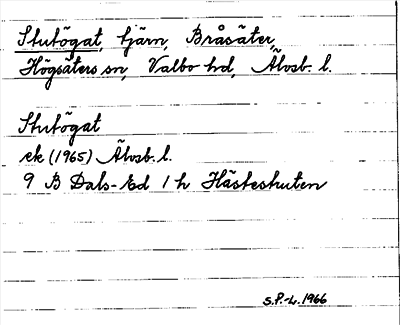 Stutögat, tjärn, Bråsäter,
Högsäters sn, Valbo hd, Älvsb. l.
Stutögat
ek (1965) Älvsb. l.
9 B Dals-Ed 1 h Hästeskuten
S.P.-L. 1966